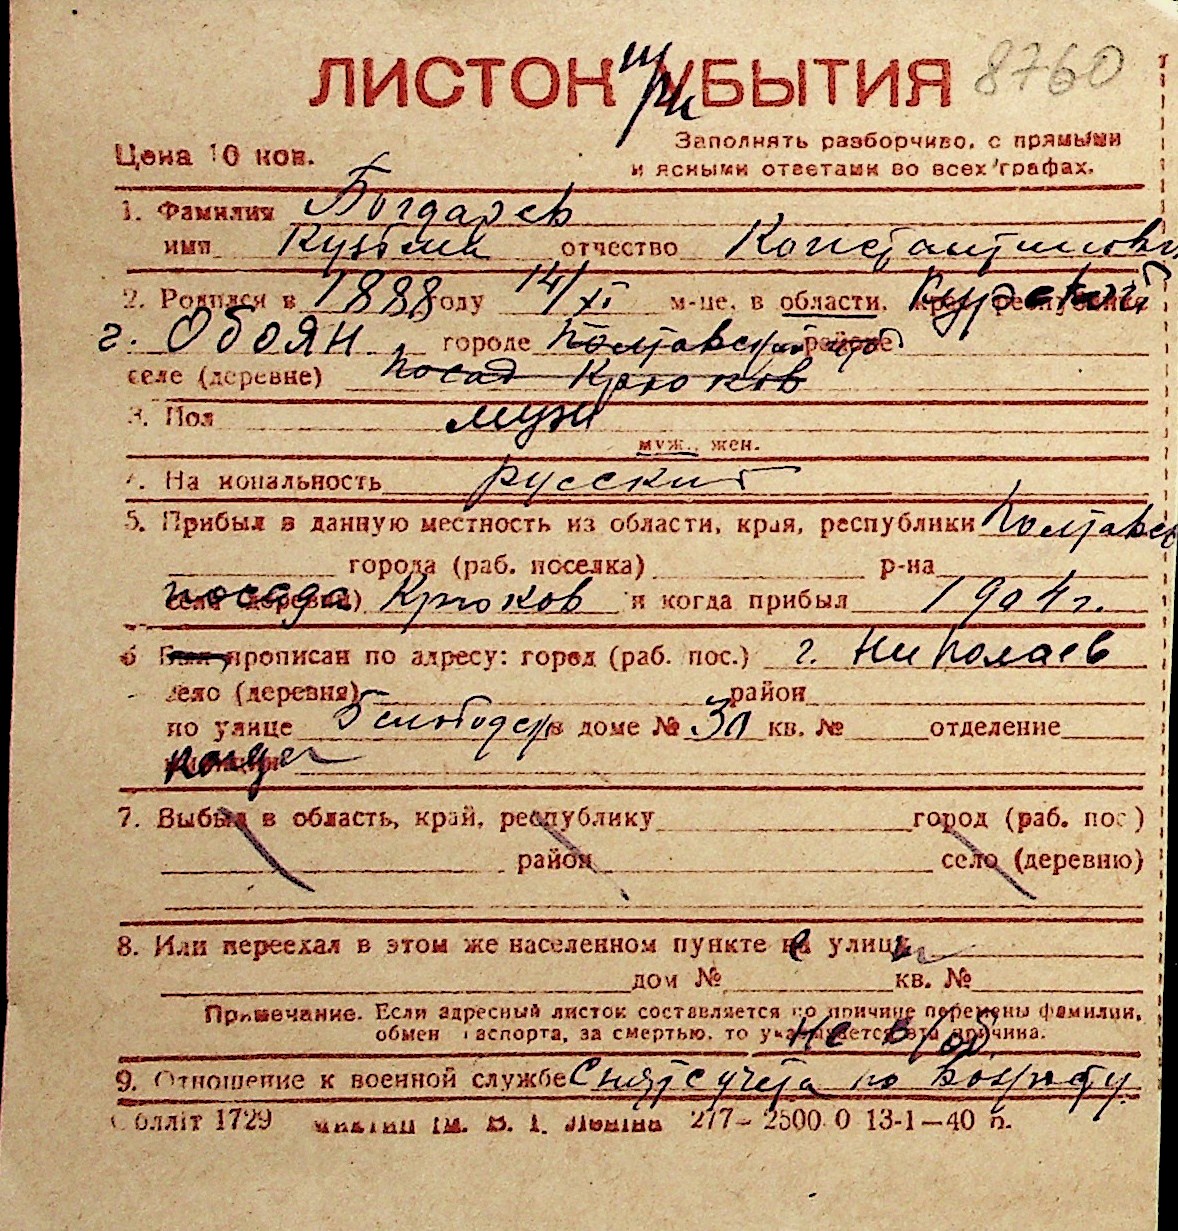 ЛИСТОК при УБЫТИЯ 8760
Цена 10 коп. Заполнять разборчиво, с прямыми
и ясными ответами во всех графах.
1. Фамилия Богдарев
имя Кузьма отчество Константинович
2. Родился в 1888 году 14/XI м-це, в области, крае, республике Курской
г. Обоян городе Полтавской районе
селе (деревне) посад Крюков
3. Пол муж
муж., жен.
4. Национальность русский
5. Прибыл в данную местность из области, края, республики Полтавск
города (раб. поселка) р-на
посада села (деревни) Крюков и когда прибыл 1904 г.
6 Был прописан по адресу: город (раб. пос.) г. Николаев
село (деревня) район
по улице в доме № кв. № отделение
милиции
7. Выбыл в область, край, республику город (раб. пос.)
район село (деревню)
8. Или переехал в этом же населенном пункте на улицу
дом № кв. №
Примечание. Если адресный листок составляется по причине перемены фамилии,
обмен паспорта, за смертью, то указывается эта причина.
не в/об
9. Отношение к военной службе Снят с учета по возрасту.
Облліт 1729 ім. В. І. Леніна 277— 2500.0 13-1—40 п.